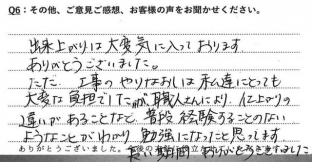 Q6：その他、ご意見ご感想、お客様の声をお聞かせください。
出来上がりは大変気に入っております
ありがとうございました。
ただ 工事のやりなおしは私達にとっても
大変な負担でしたが 職人さんにより、仕上がりの
違いがあることなど、普段 経験することのない
ようなことがわかり 勉強になったと思ってます
ありがとうございました。
長い期間 ありがとうございました